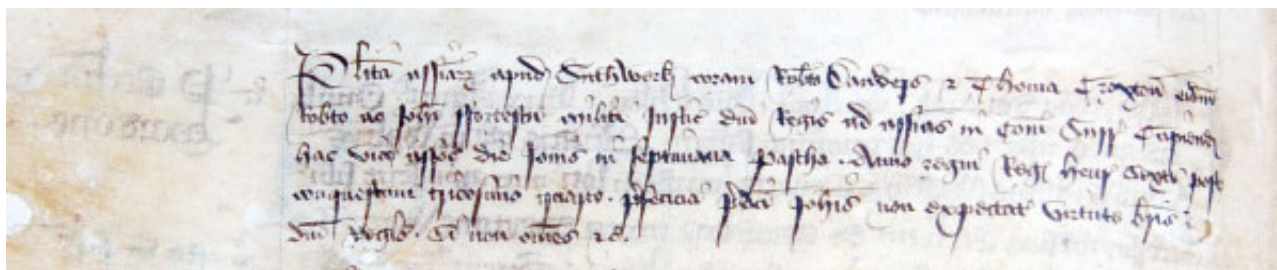 Plita assisar apud Suthwerk coram Robto Danvers & Thoma Croxton eidm
Robto ac Johi Fortescu militi Justic dni Regis ad assisas in Com Surr Capiend
hac vice assoc die Jovis in septimana Pasche . Anno regni Reg Henr Sexti post
conquestum tricesimo quarto . psencia pdci Johis non expectat virtute bris
dni Regis . Si non omes &c .